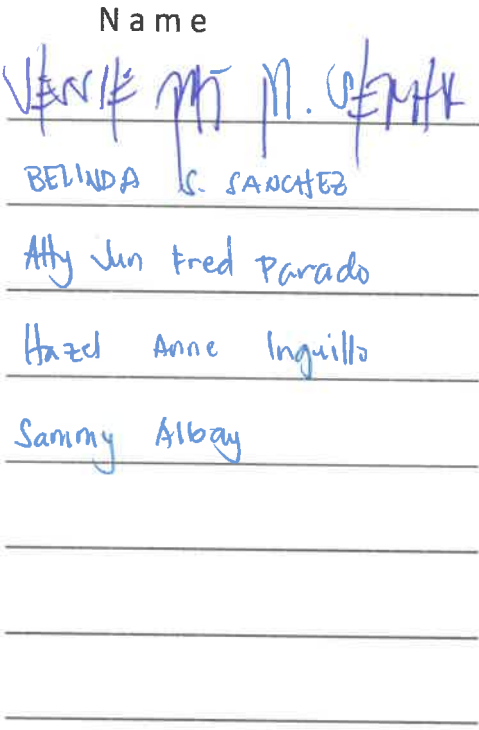 Name
VENIE M.
BELINDA S. SANCHEZ
Atty Jun Fred Parado
Hazel Anne Inguillo
Sammy Albay